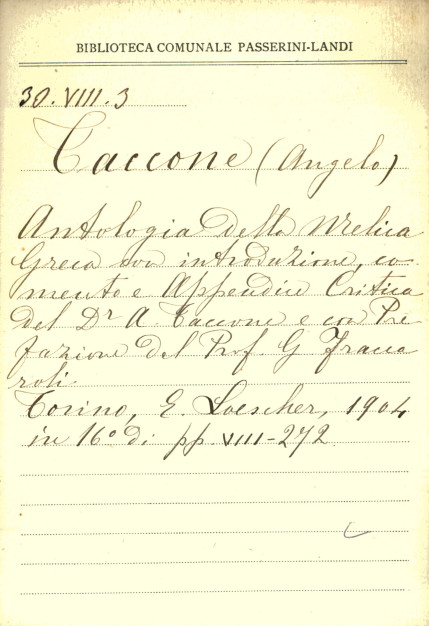 BIBLIOTECA COMUNALE PASSERINI-LANDI
30.VIII.3
Taccone (Angelo)
Antologia della Melica
Greca con introduzione, co
mento e Appendice Critica
del Dr A. Taccone e con Pre
fazione del Prof. G Fracca
roli
Torino, E. Loescher, 1904
in 16° di pp. VIII-272